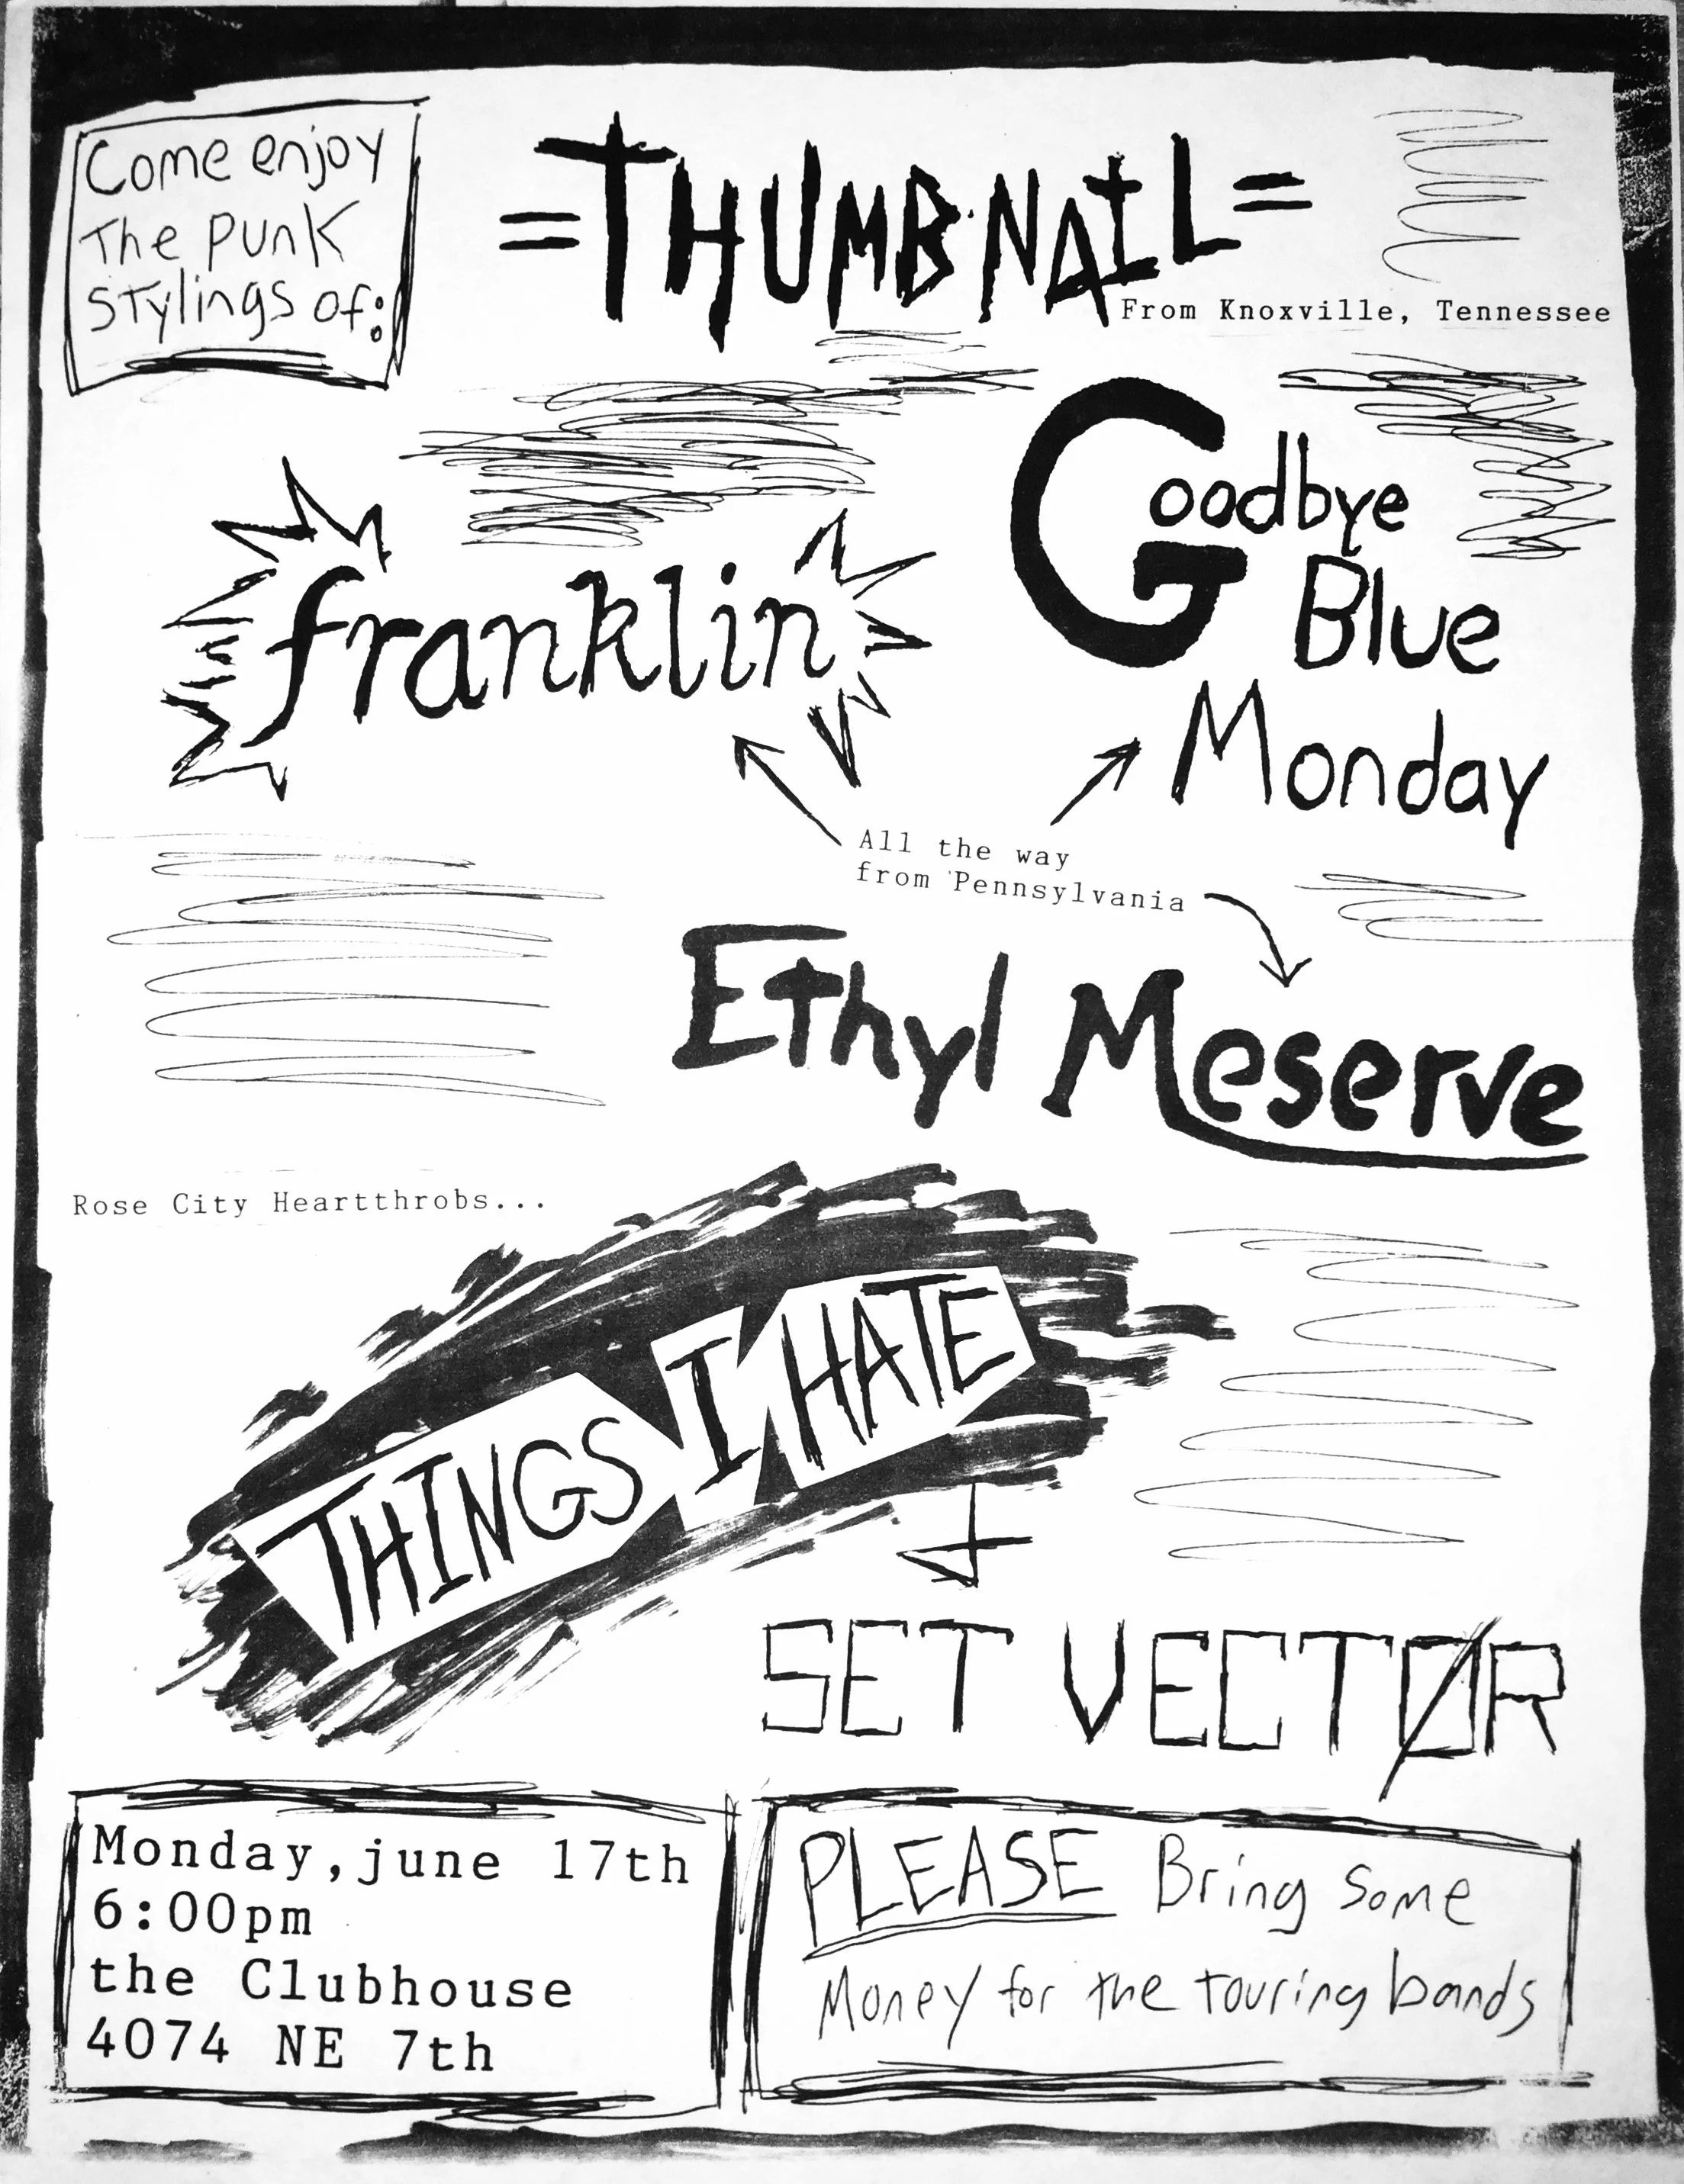 Come enjoy
The punk
stylings of:
=THUMBNAIL=
From Knoxville, Tennessee
franklin
Goodbye
Blue
Monday
All the way
from Pennsylvania
Ethyl Meserve
Rose City Heartthrobs...
THINGS I HATE
SET VECTØR
Monday, june 17th
6:00pm
the Clubhouse
4074 NE 7th
PLEASE Bring some
Money for the touring bands